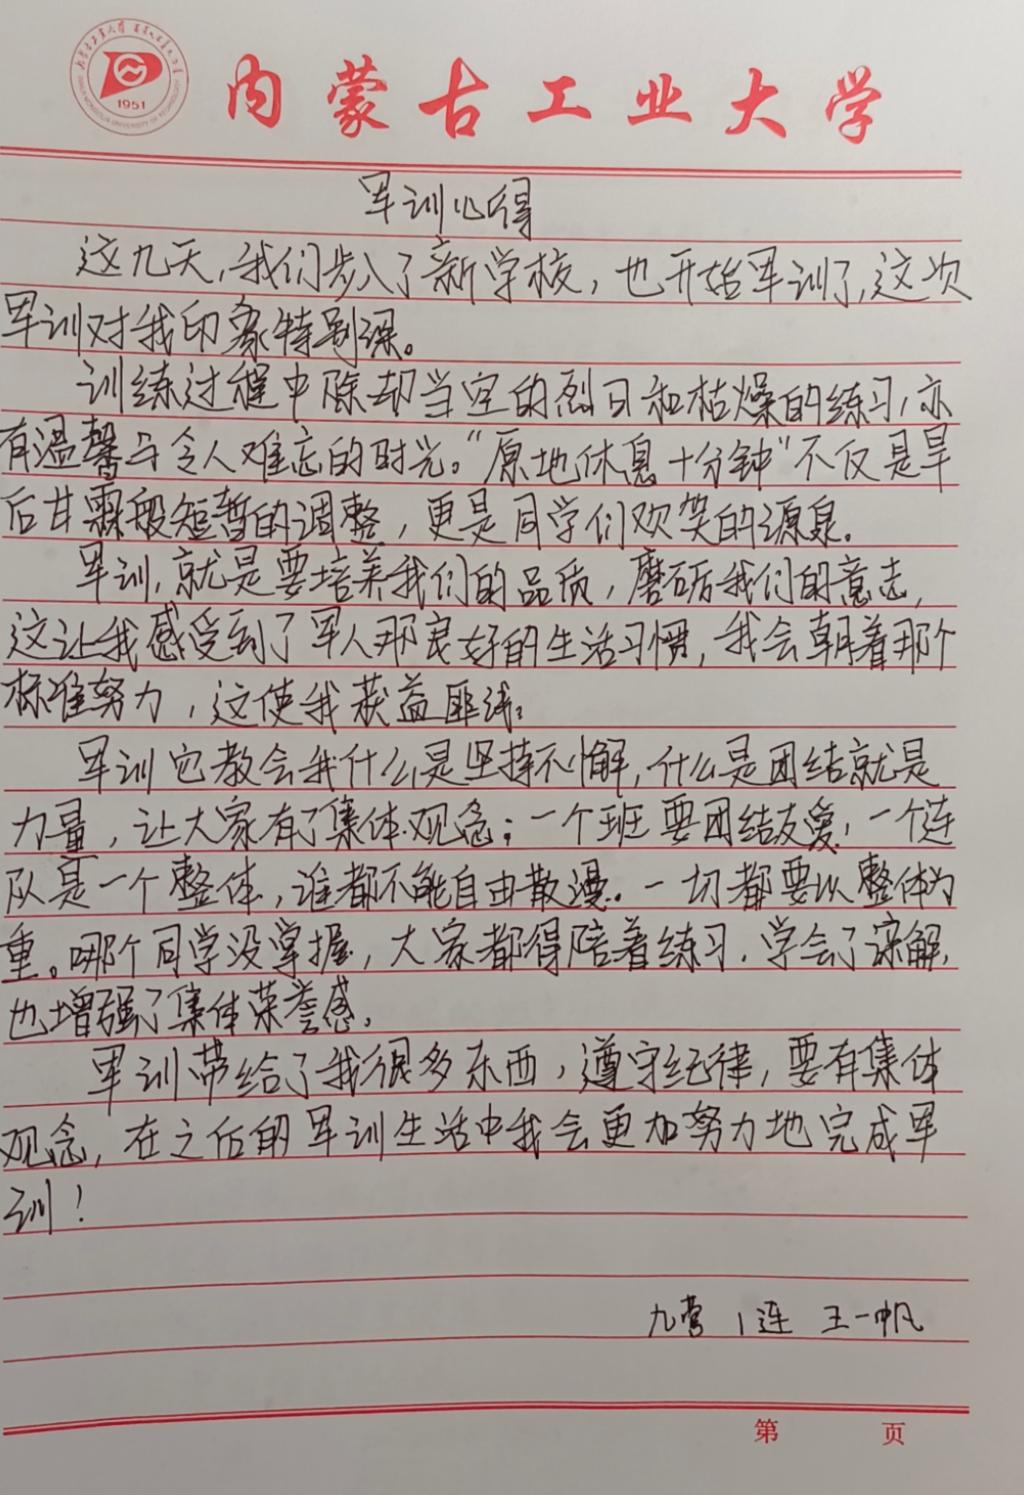 1951
内蒙古工业大学
军训心得
这九天,我们步入了新学校,也开始军训了,这次
军训对我印象特别深。
训练过程中除却当空的烈日和枯燥的练习,亦
有温馨与令人难忘的时光。“原地休息十分钟”不仅是旱
后甘霖般短暂的调整,更是同学们欢笑的源泉。
军训,就是要培养我们的品质,磨砺我们的意志,
这让我感受到了军人那良好的生活习惯,我会朝着那个
标准努力,这使我获益匪浅。
军训它教会我什么是坚持不懈,什么是团结就是
力量,让大家有了集体观念;一个班要团结友爱,一个连
队是一个整体,谁都不能自由散漫。一切都要以整体为
重。哪个同学没掌握,大家都得陪着练习.学会了谅解,
也增强了集体荣誉感。
军训带给了我很多东西,遵守纪律,要有集体
观念,在之后的军训生活中我会更加努力地完成军
训!
九营 1连 王一帆
第 页